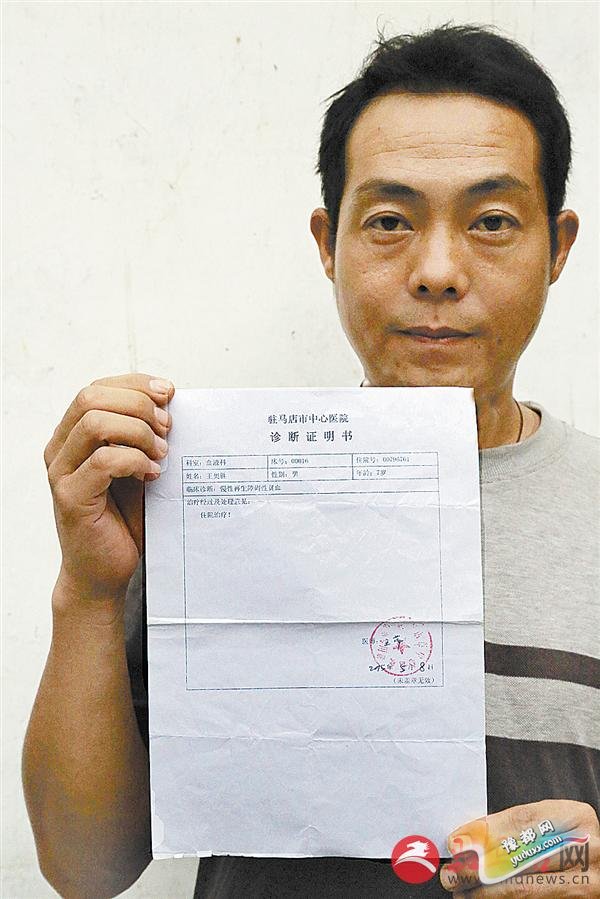 驻马店市中心医院
诊断证明书
科室：血液科 床号：00016 住院号：00796761
姓名：王奥 性别：男 年龄：7岁
临床诊断：慢性再生障碍性贫血
治疗经过及处理意见：
住院治疗！
医师：
(未盖章无效)
豫都网
yuduxx.com
网